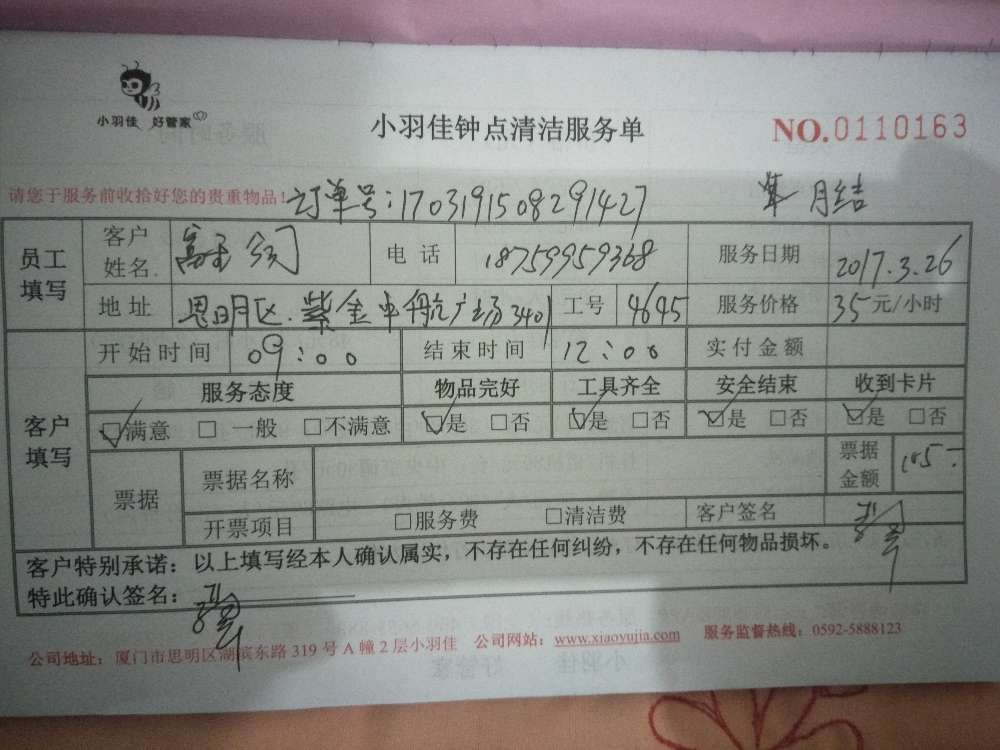 小羽佳 好管家
小羽佳钟点清洁服务单
NO.0110163
请您于服务前收拾好您的贵重物品!
订单号:1703191508291427
月结
员工填写
客户姓名.
电 话 18759959368
服务日期 2017.3.26
地 址 思明区.紫金中航广场3401
工号 4645
服务价格 35元/小时
客户填写
开始时间 09:00
结束时间 12:00
实付金额
服务态度 物品完好 工具齐全 安全结束 收到卡片
☑满意 □ 一般 □不满意 ☑是 □否 ☑是 □否 ☑是 □否 ☑是 □否
票据
票据名称
票据金额 105-
开票项目 □服务费 □清洁费 客户签名
客户特别承诺：以上填写经本人确认属实，不存在任何纠纷，不存在任何物品损坏。
特此确认签名：
公司地址：厦门市思明区湖滨东路 319 号 A 幢 2 层小羽佳 公司网站：www.xiaoyujia.com 服务监督热线：0592-5888123